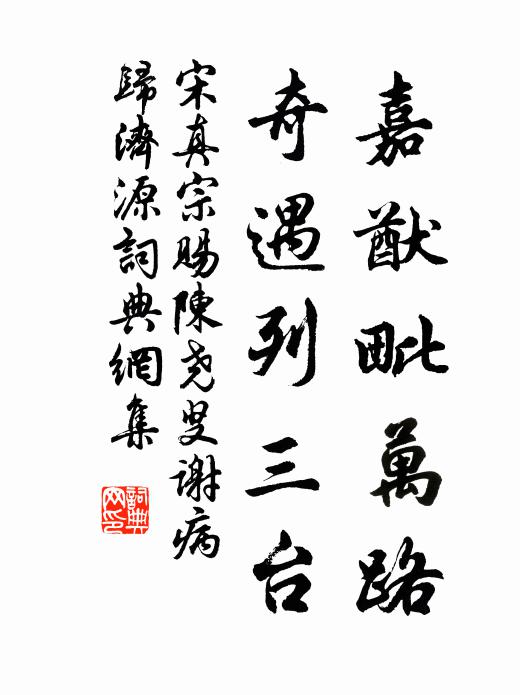 嘉猷毗萬路
奇遇列三台
宋真宗賜陳尧叟謝病
歸濟源詞典網集
詞典
网印